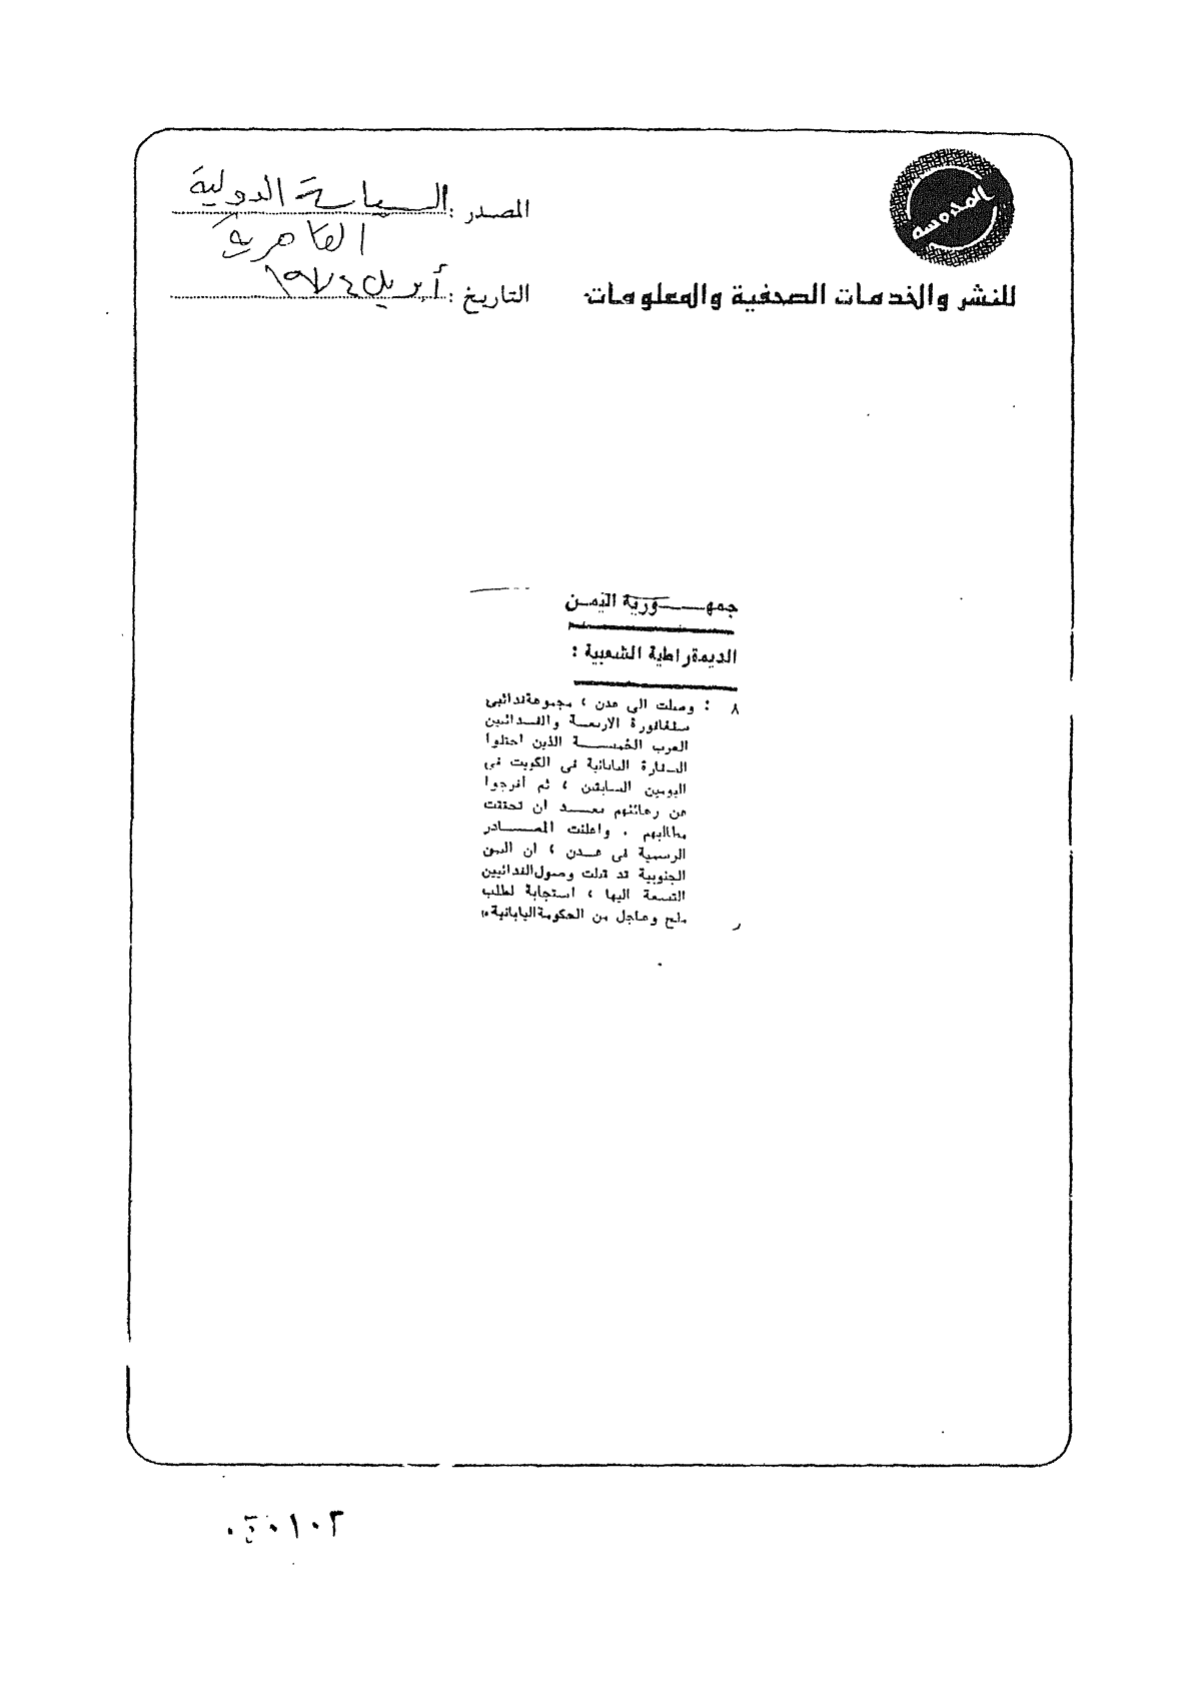 المحروسة
للنشر والخدمات الصحفية والمعلومات
المصدر : السياسة الدولية
القاهرية
التاريخ : أبريل ١٩٧٤
جمهـــورية اليمن
الديمقراطية الشعبية :
٨ : وصلت الى عدن ، مجموعة فدائيى
سنغافورة الاربعـة والفـدائيين
العرب الخمســة الذين احتلوا
السفارة اليابانية فى الكويت فى
اليومين السابقين ، ثم أفرجوا
عن رهائنهم بعــد ان تحققت
مطالبهم . واعلنت المصـــادر
الرسمية فى عــدن ، ان اليمن
الجنوبية قد قبلت وصول الفدائيين
التسعة اليها ، استجابة لطلب
ملح وعاجل من الحكومة اليابانية .